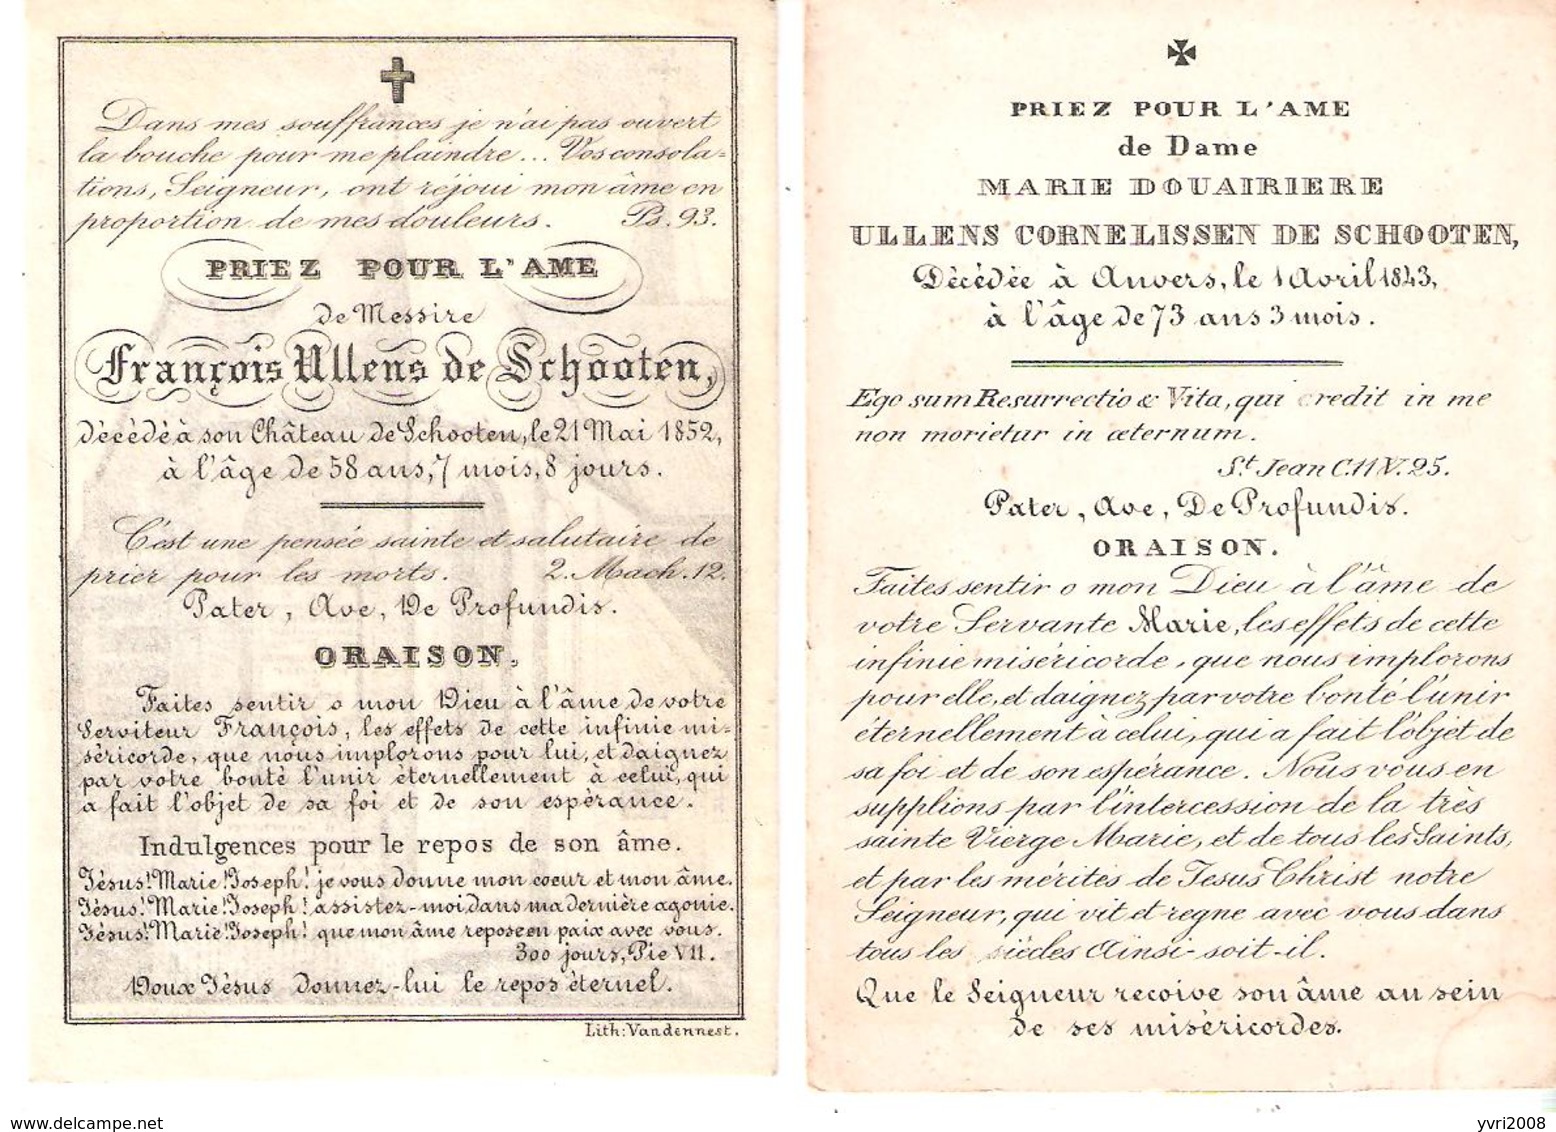 Dans mes souffrances je n'ai pas ouvert
la bouche pour me plaindre... Vos consola=
tions, Seigneur, ont réjoui mon âme en
proportion de mes douleurs. Ps. 93.
PRIEZ POUR L'AME
de Messire
François Ullens de Schooten,
décédé à son Château de Schooten, le 21 Mai 1852,
à l'âge de 58 ans, 7 mois, 8 jours.
C'est une pensée sainte et salutaire de
prier pour les morts. 2. Mach. 12.
Pater, Ave, De Profundis.
ORAISON.
Faites sentir o mon Dieu à l'âme de votre
Serviteur François, les effets de cette infinie mi-
séricorde, que nous implorons pour lui, et daignez
par votre bonté l'unir éternellement à celui, qui
a fait l'objet de sa foi et de son espérance.
Indulgences pour le repos de son âme.
Jésus! Marie! Joseph! je vous donne mon coeur et mon âme.
Jésus! Marie! Joseph! assistez-moi dans ma dernière agonie.
Jésus! Marie! Joseph! que mon âme repose en paix avec vous.
300 jours, Pie VII.
Doux Jésus donnez-lui le repos éternel.
Lith: Vandennest.
PRIEZ POUR L'AME
de Dame
MARIE DOUAIRIERE
ULLENS CORNELISSEN DE SCHOOTEN,
Décédée à Anvers, le 1 Avril 1843,
à l'âge de 73 ans 3 mois.
Ego sum Resurrectio & Vita, qui credit in me
non morietur in æternum.
St. Jean C. 11 V. 25.
Pater, Ave, De Profundis.
ORAISON.
Faites sentir o mon Dieu à l'âme de
votre Servante Marie, les effets de cette
infinie miséricorde, que nous implorons
pour elle, et daignez par votre bonté l'unir
éternellement à celui, qui a fait l'objet de
sa foi et de son espérance. Nous vous en
supplions par l'intercession de la très
sainte Vierge Marie, et de tous les Saints,
et par les mérites de Jesus Christ notre
Seigneur, qui vit et regne avec vous dans
tous les siècles Ainsi-soit-il.
Que le Seigneur recoive son âme au sein
de ses miséricordes.
yvri2008